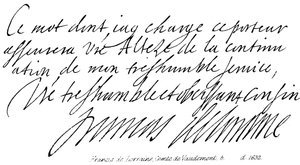 Ce mot dont jay charge ce porteur
asseurera vre Alteze de la continu
ation de mon treshumble service,
Vre treshumble et obeissant cousin
Francois de Lorraine
Francis de Lorraine, Comte de Vaudemont. b. d. 1632.